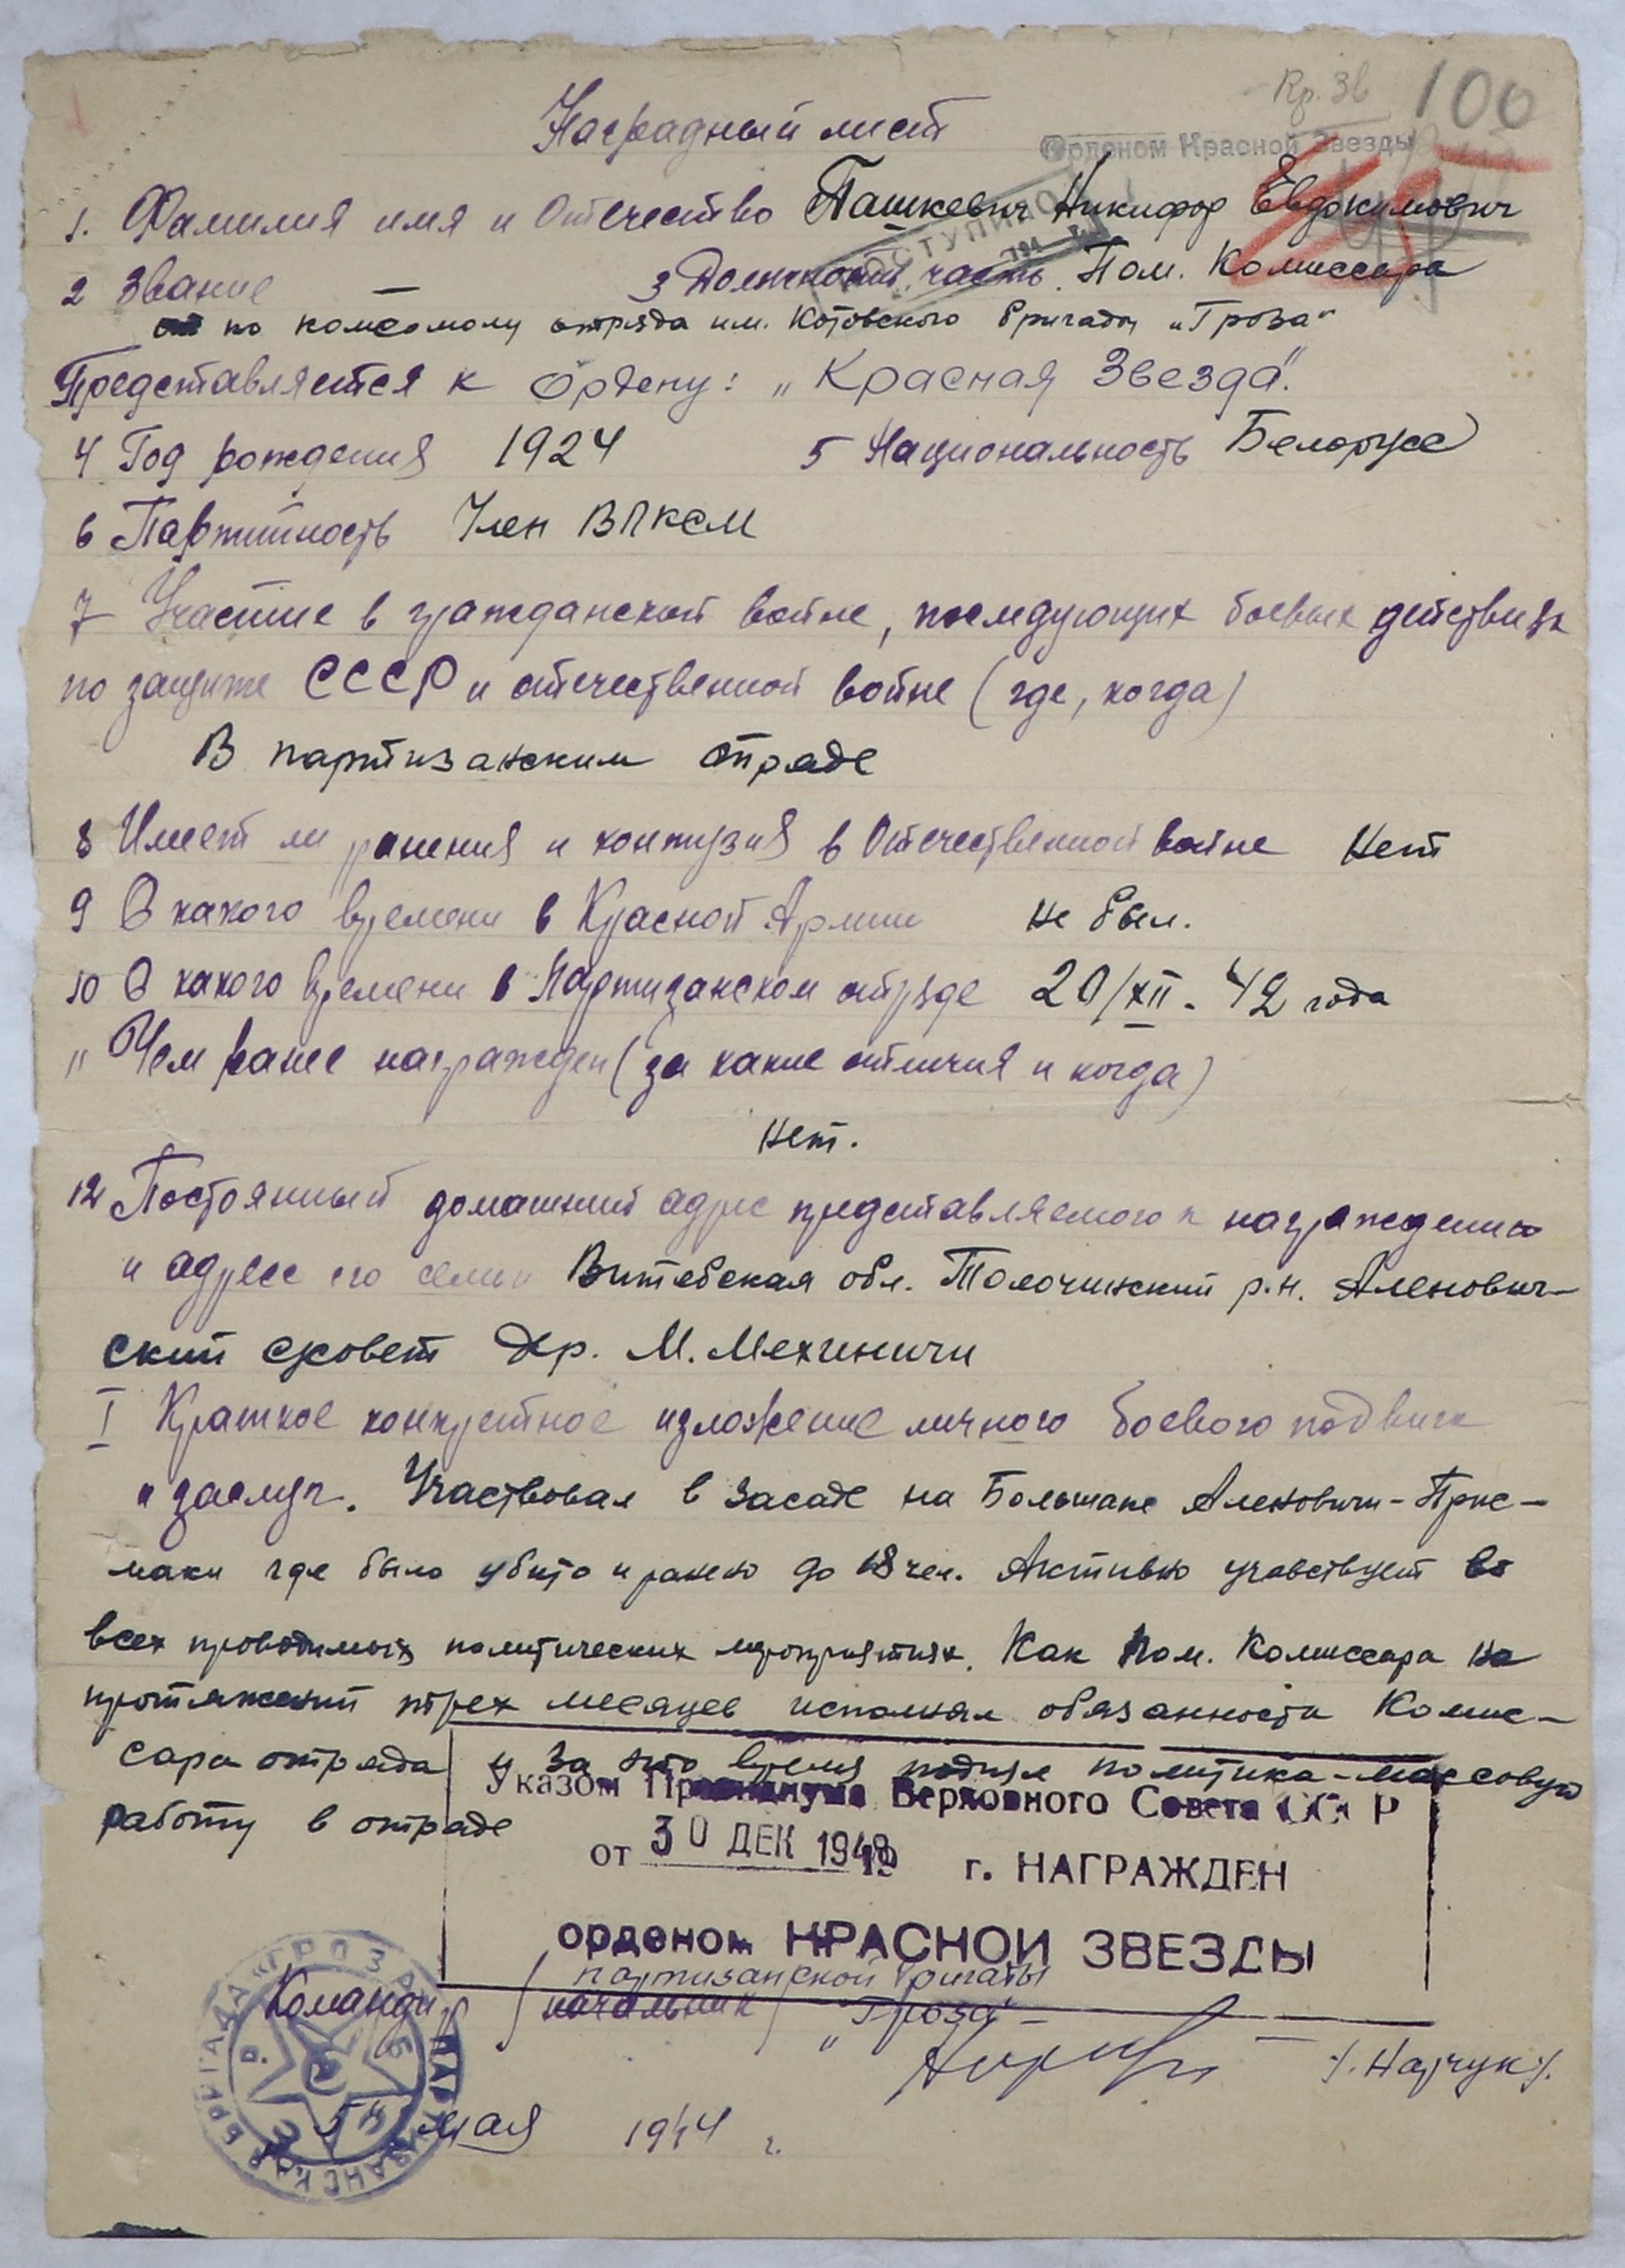 Кр. Зв 100
Наградный лист
Орденом Красной Звезды
1. Фамилия имя и Отечество Пашкевич Никифор Евдокимович
2 Звание — 3 Должность, часть. Пом. Комиссара
по комсомолу отряда им. Котовского бригады „Гроза"
Представляется к Ордену: „Красная Звезда".
4 Год рождения 1924 5 Национальность Белорусс
6 Партийность Член ВЛКСМ
7 Участие в гражданской войне, последующих боевых действиях
по защите СССР и отечественной войне (где, когда)
В партизанским отряде
8 Имеет ли ранения и контузия в Отечественной войне Нет
9 С какого времени в Красной Армии не был.
10 С какого времени в Партизанском отряде 20/XII - 42 года
11 Чем ранее награжден (за какие отличия и когда)
нет.
12 Постоянный домашний адрес представляемого к награждению
и адрес его семьи Витебская обл. Толочинский р.н. Аленович-
ский с/совет дер. М. Мехиничи
I Краткое конкретное изложение личного боевого подвига
и заслуг. Участвовал в засаде на Большаке Аленовичи - Прис-
маки где было убито и ранено до 18 чел. Активно учавствует во
всех проводимых политических мероприятиях. Как Пом. Комиссара на
протяжении трех месяцев исполнял обязанности Комис-
сара отряда и за это время поднял политика-массовую
Указом Президиума Верховного Совета СССР
работу в отряде
от 30 ДЕК 1948 г. НАГРАЖДЕН
орденом КРАСНОЙ ЗВЕЗДЫ
партизанской бригады
Командир начальник „Гроза"
/. Нарчук /.
5 мая 1944 г.
ПАРТИЗАНСКАЯ БРИГАДА „ГРОЗА"